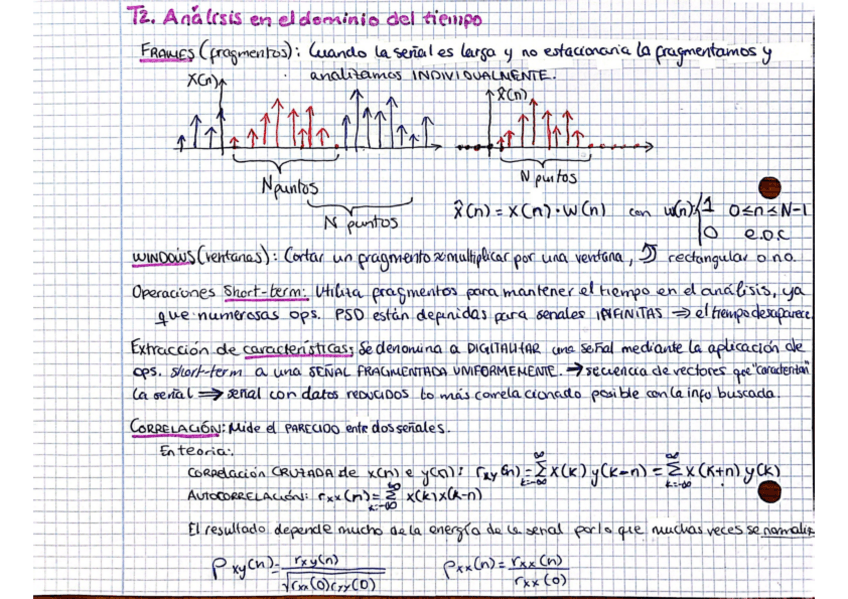 T2. Análisis en el dominio del tiempo
FRAMES (fragmentos): Cuando la señal es larga y no estacionaria la fragmentamos y
analizamos INDIVIDUALMENTE.
X(n)
x̂(n)
N puntos
N puntos
N puntos
x̂(n) = x(n) · w(n) con w(n) 1 0≤n≤N-1
0 e.o.c
WINDOWS (ventanas): Cortar un fragmento ≈ multiplicar por una ventana, rectangular o no.
Operaciones Short-term: Utiliza fragmentos para mantener el tiempo en el análisis, ya
que numerosas ops. PSD están definidas para señales INFINITAS ⇒ el tiempo desaparece
Extracción de características: Se denomina a DIGITALIZAR una señal mediante la aplicación de
ops. short-term a una SEÑAL FRAGMENTADA UNIFORMEMENTE. → secuencia de vectores que "caracterizan"
la señal ⇒ señal con datos REDUCIDOS lo más correlacionado posible con la info buscada.
CORRELACIÓN: Mide el PARECIDO ente dos señales.
En teoria:
CORRELACIÓN CRUZADA de x(n) e y(n): rxy(n) = ∞Σk=-∞ x(k) y(k-n) = ∞Σk=-∞ x(k+n) y(k)
AUTOCORRELACIÓN: rxx(n) = ∞Σk=-∞ x(k) x(k-n)
El resultado depende mucho de la energía de la señal por lo que muchas veces se normaliz
ρxy(n) = rxy(n) / √rxx(0) ryy(0) ρxx(n) = rxx(n) / rxx(0)